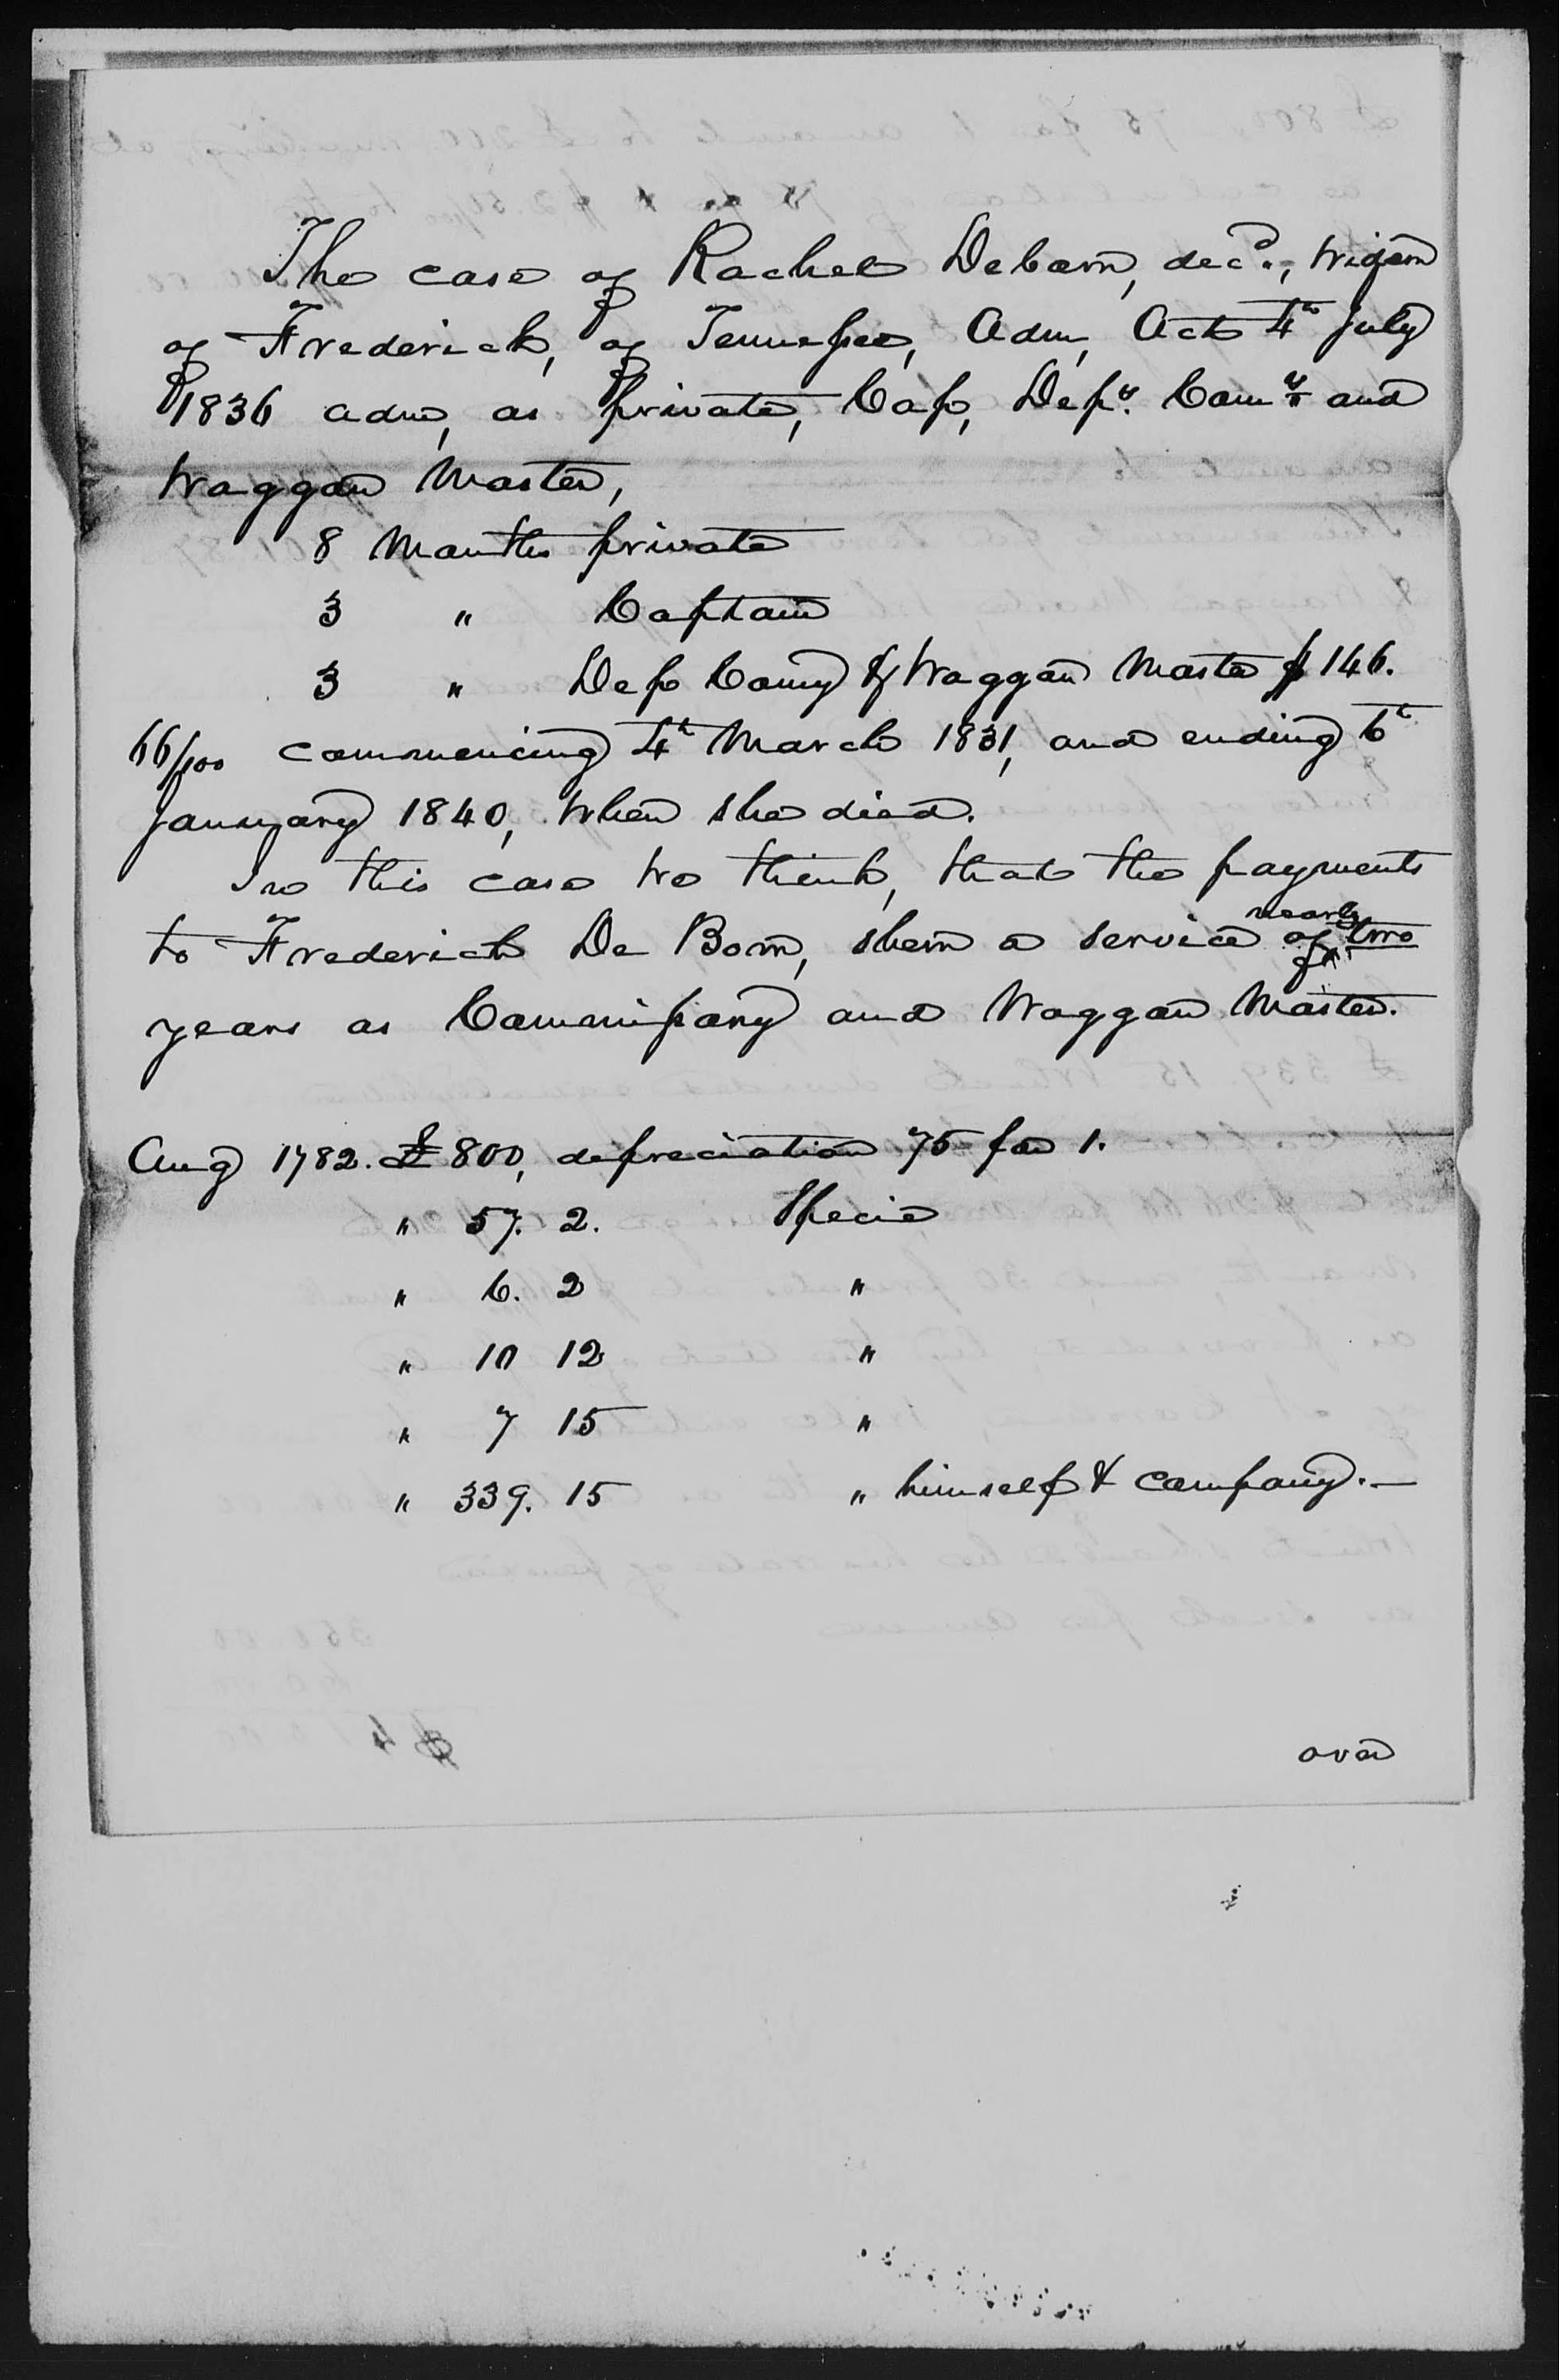 The case of Rachel Debow, decd., widow
of Frederick, of Tennessee, Adm, Act 4th July
1836 adm, as private, Cap, Depy. Comy and
Waggon Master,
8 Months private
3 " Captain
3 " Dep Comy & Waggon Master $146.
66/100 commencing 4th March 1831, and ending 6th
January 1840, when she died.
In this case we think, that the payments
to Frederick De Bow, shew a service of nearly two
years as Commissary and Waggon Master.
Aug 1782. £ 800, depreciation 75 for 1.
" 57. 2. Specie
" 6. 2 "
" 10 12 "
" 7 15 "
" 339. 15 " himself & company.—
over